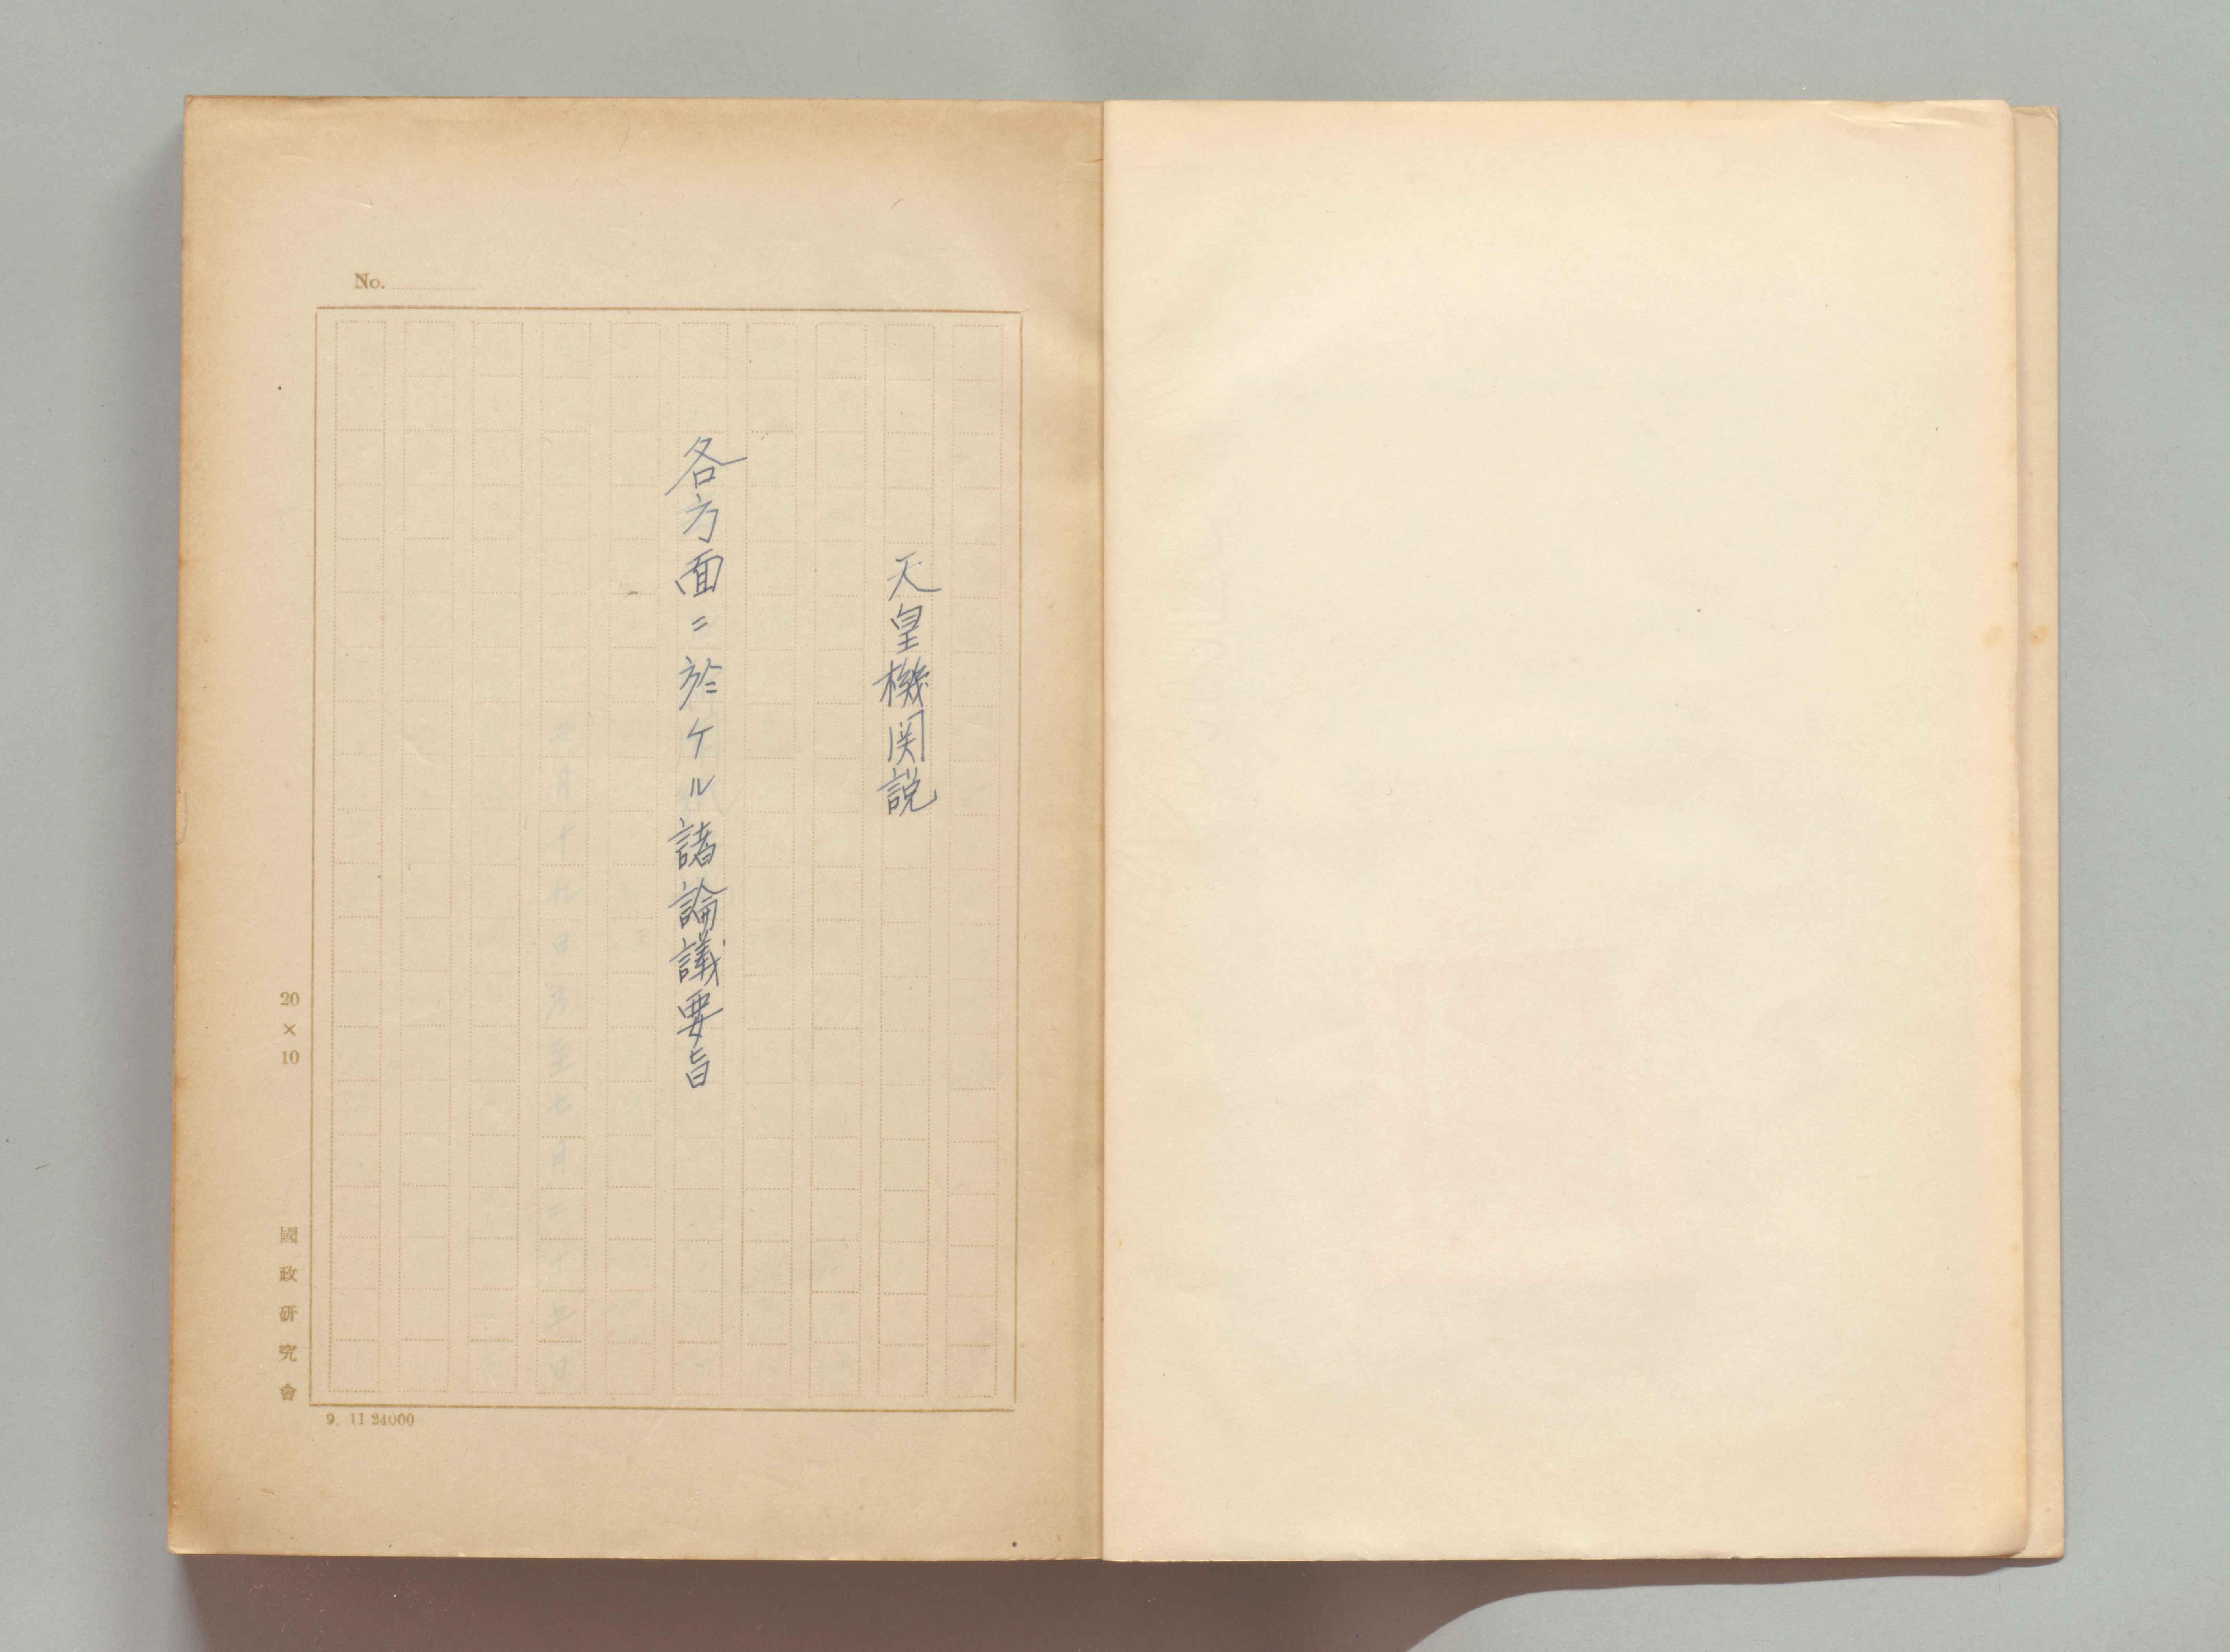 No.
天皇機関説
各方面ニ於ケル諸論議要旨
20×10
國政研究會
9. 11 24000